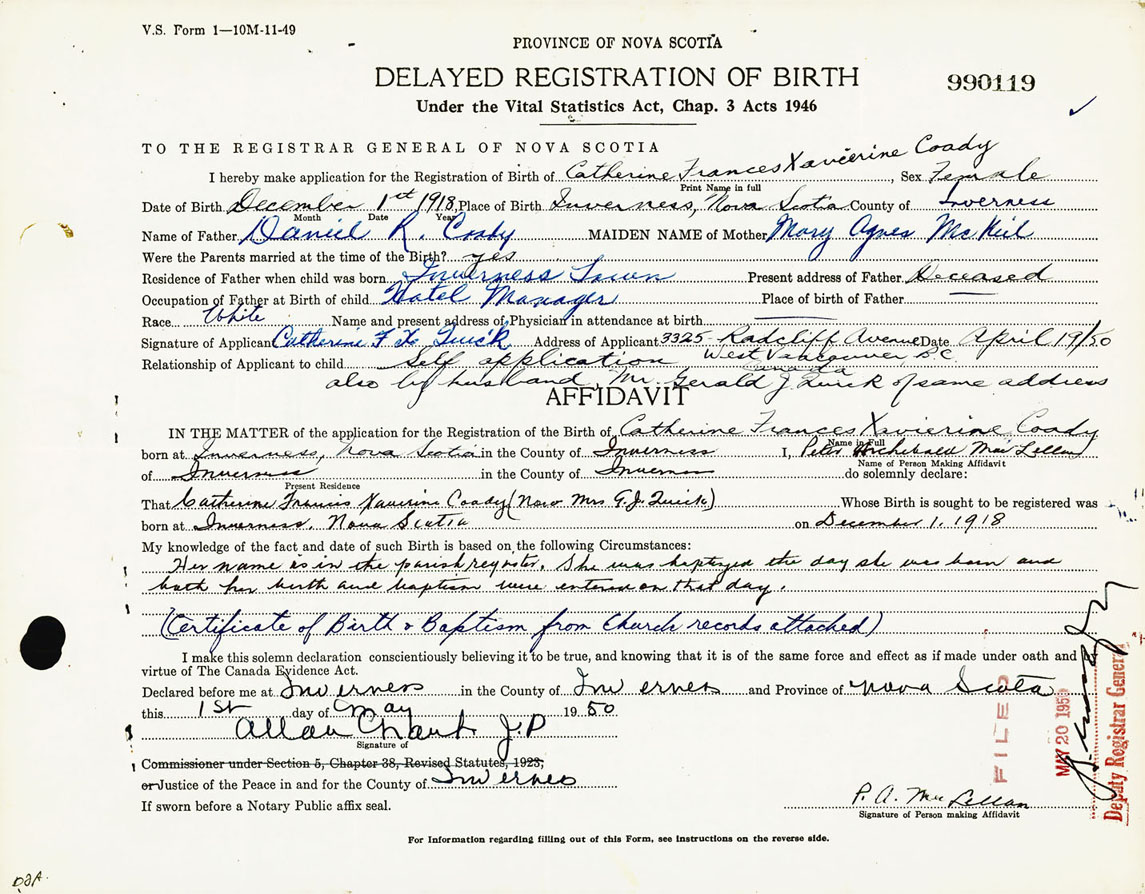 V.S. Form 1—10M-11-49
PROVINCE OF NOVA SCOTIA
DELAYED REGISTRATION OF BIRTH
990119
Under the Vital Statistics Act, Chap. 3 Acts 1946
TO THE REGISTRAR GENERAL OF NOVA SCOTIA
I hereby make application for the Registration of Birth of Catherine Frances Xavierine Coady, Sex Female
Print Name in full
Date of Birth December 1st 1918, Place of Birth Inverness, Nova Scotia County of Inverness
Month Date Year
Name of Father Daniel R. Coady MAIDEN NAME of Mother Mary Agnes McNeil
Were the Parents married at the time of the Birth? yes
Residence of Father when child was born Inverness Town Present address of Father Deceased
Occupation of Father at Birth of child Hotel Manager Place of birth of Father
Race White Name and present address of Physician in attendance at birth
Signature of Applicant Catherine F X Quirk Address of Applicant 3325 Radcliff Avenue Date April 19/50
Relationship of Applicant to child Self application West Vancouver B.C.
Canada
also by husband, Mr. Gerald J. Quirk of same address
AFFIDAVIT
IN THE MATTER of the application for the Registration of the Birth of Catherine Frances Xavierine Coady
Name in Full
born at Inverness, Nova Scotia in the County of Inverness I, Peter Archibald MacLellan
Name of Person Making Affidavit
of Inverness in the County of Inverness do solemnly declare:
Present Residence
That Catherine Francis Xavierine Coady (Now Mrs G.J. Quirk) Whose Birth is sought to be registered was
born at Inverness, Nova Scotia on December 1, 1918
My knowledge of the fact and date of such Birth is based on the following Circumstances:
Her name is in the parish register. She was baptized the day she was born and
both her birth and baptism were entered on that day.
(Certificate of Birth & Baptism from Church records attached)
I make this solemn declaration conscientiously believing it to be true, and knowing that it is of the same force and effect as if made under oath and
virtue of The Canada Evidence Act.
Declared before me at Inverness in the County of Inverness and Province of Nova Scotia
this 1st day of May 1950
Allan J.P
Signature of
Commissioner under Section 5, Chapter 38, Revised Statutes, 1923,
or Justice of the Peace in and for the County of Inverness
If sworn before a Notary Public affix seal.
P. A. MacLellan
Signature of Person making Affidavit
FILED
MAY 20 1950
Deputy Registrar General
For Information regarding filling out of this Form, see instructions on the reverse side.